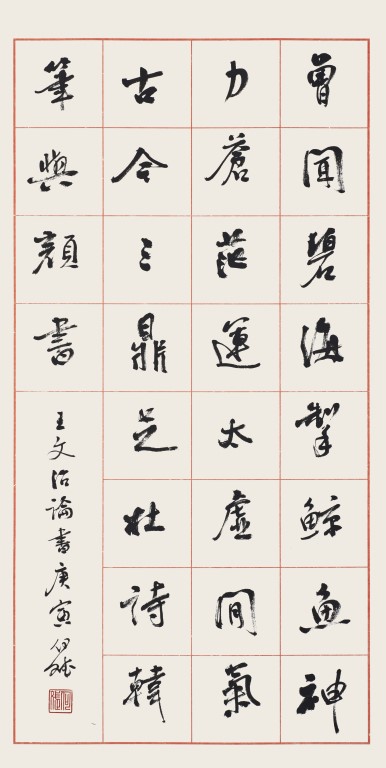 曾聞碧海掣鯨魚神
力蒼茫運太虛間氣
古今三鼎足杜詩韓
筆與顏書
王文治論書庚寅